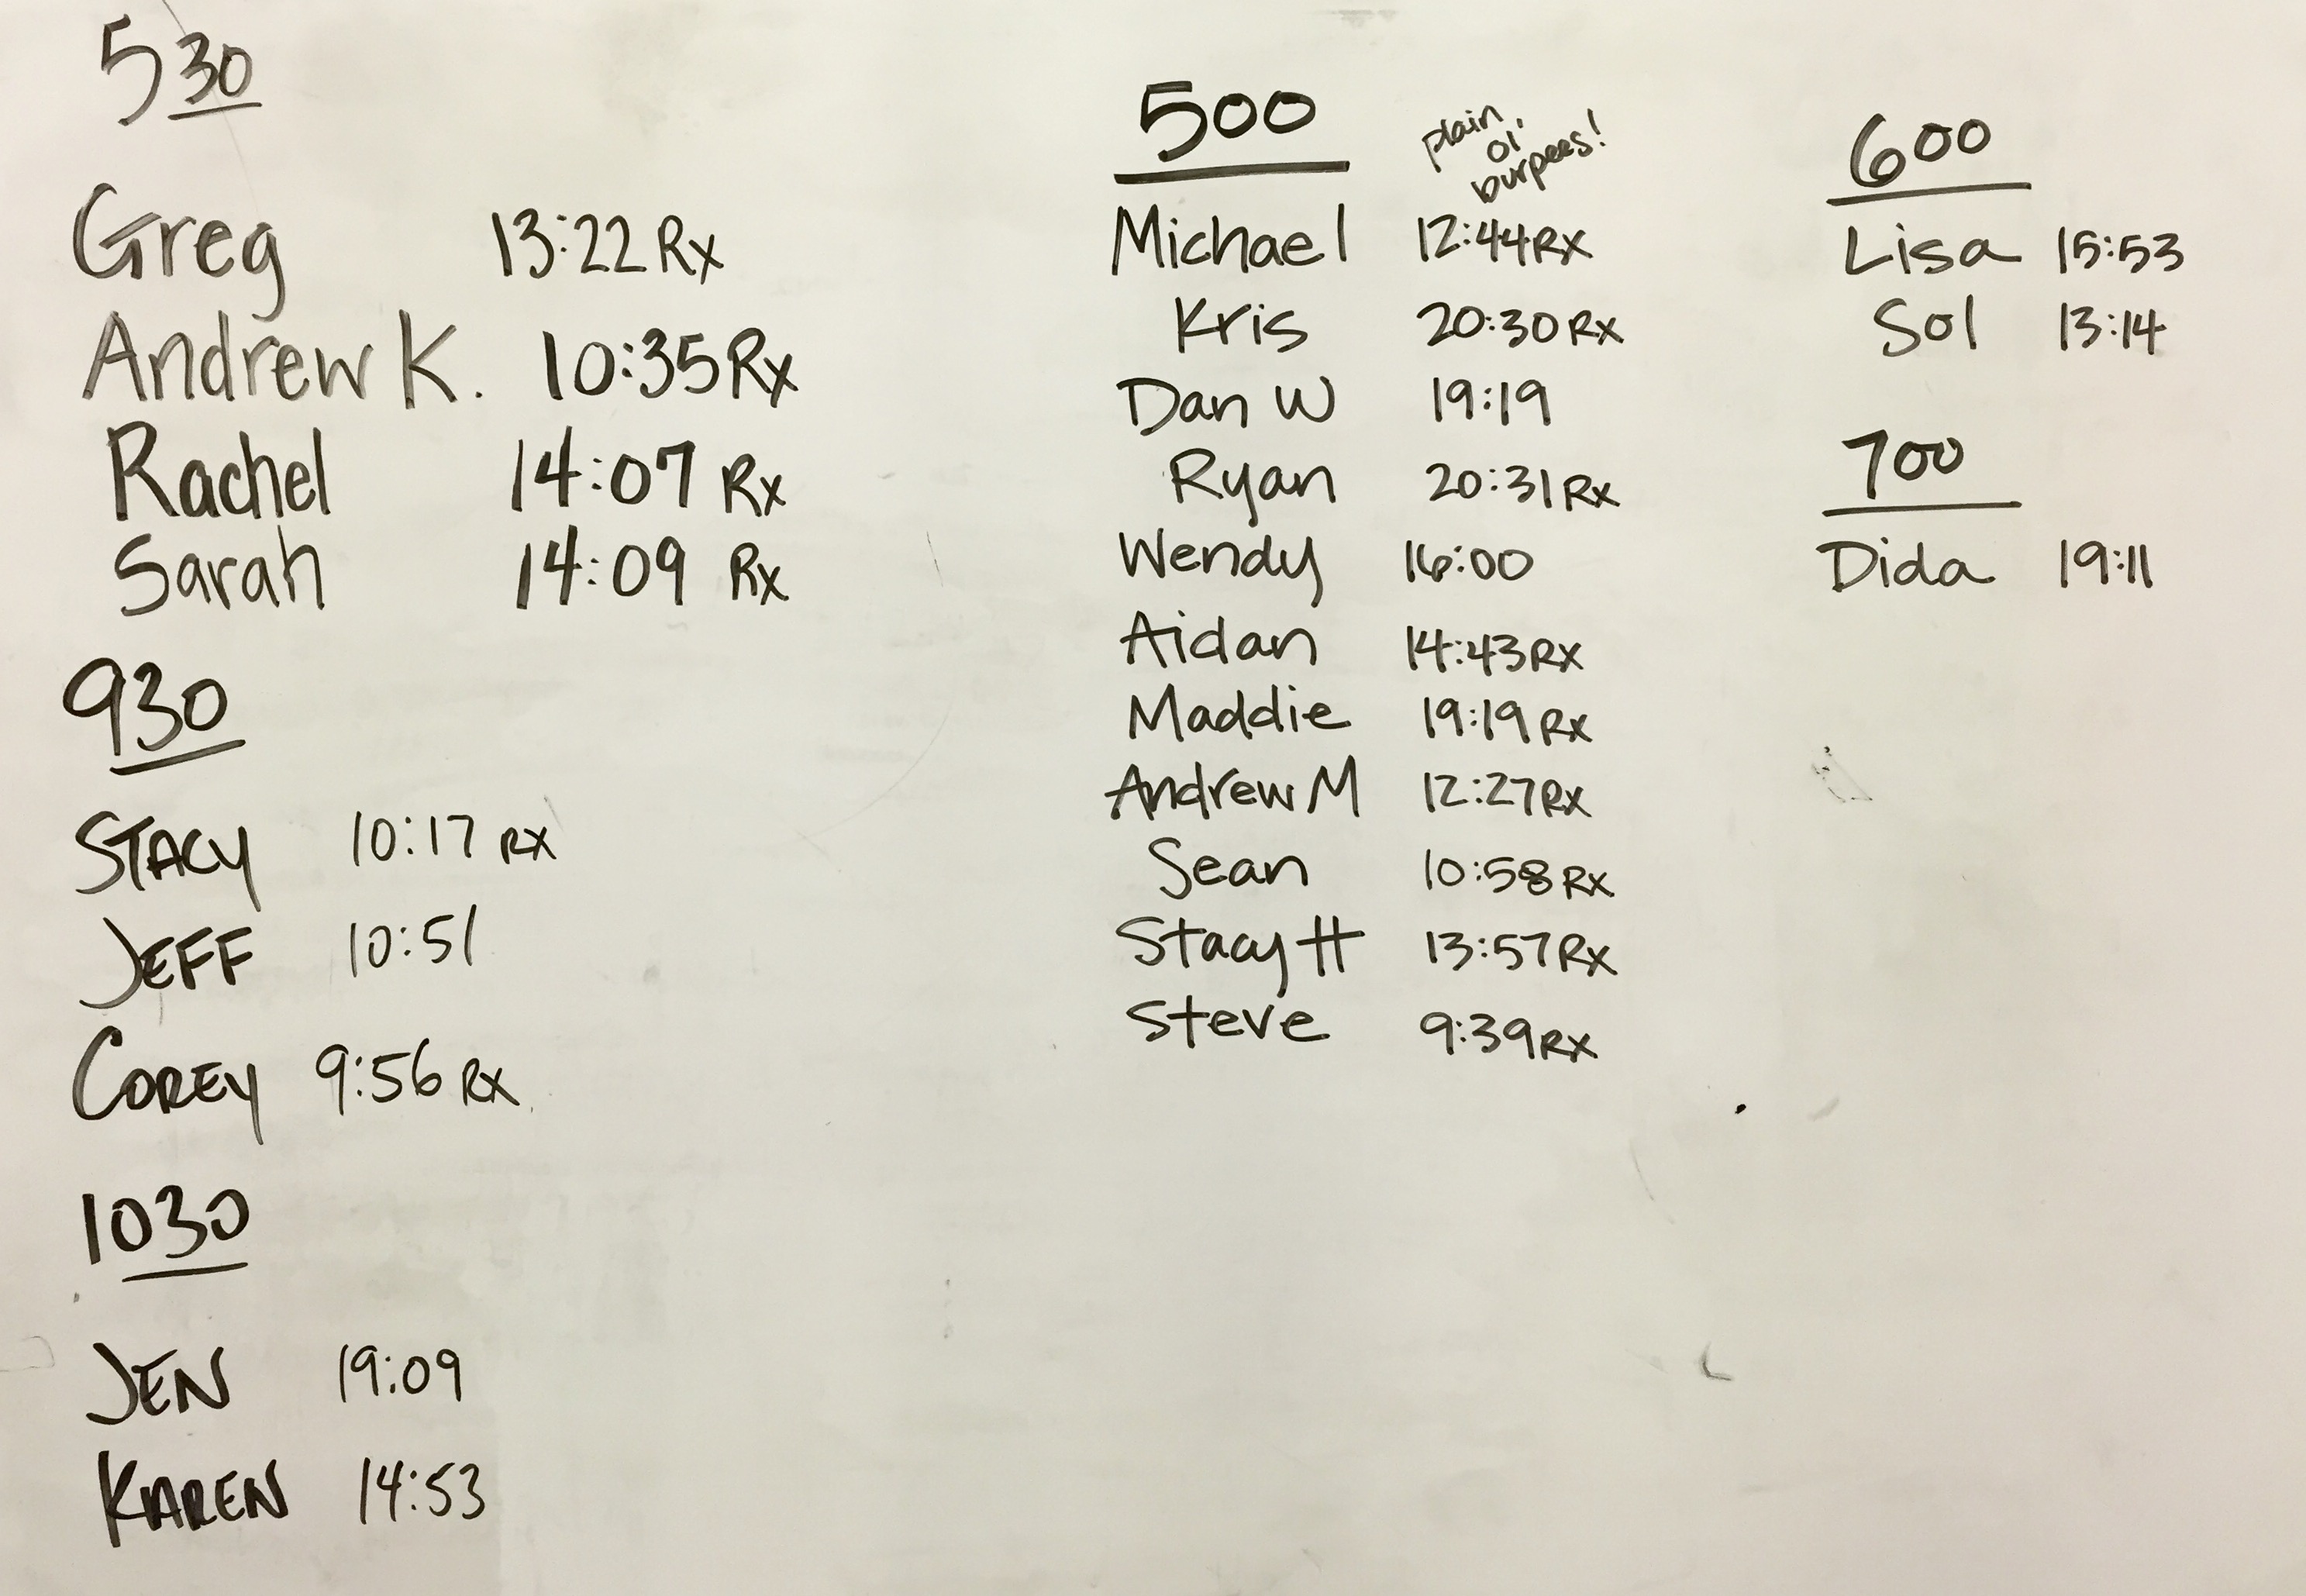 530
Greg 13:22 Rx
Andrew K. 10:35 Rx
Rachel 14:07 Rx
Sarah 14:09 Rx
930
STACY 10:17 RX
JEFF 10:51
COREY 9:56 RX
1030
JEN 19:09
KAREN 14:53
500
plain
ol'
burpees!
Michael 12:44 RX
Kris 20:30 RX
Dan W 19:19
Ryan 20:31 RX
Wendy 16:00
Aidan 14:43 RX
Maddie 19:19 RX
Andrew M 12:27 RX
Sean 10:58 RX
Stacy H 13:57 RX
Steve 9:39 RX
600
Lisa 15:53
Sol 13:14
700
Dida 19:11